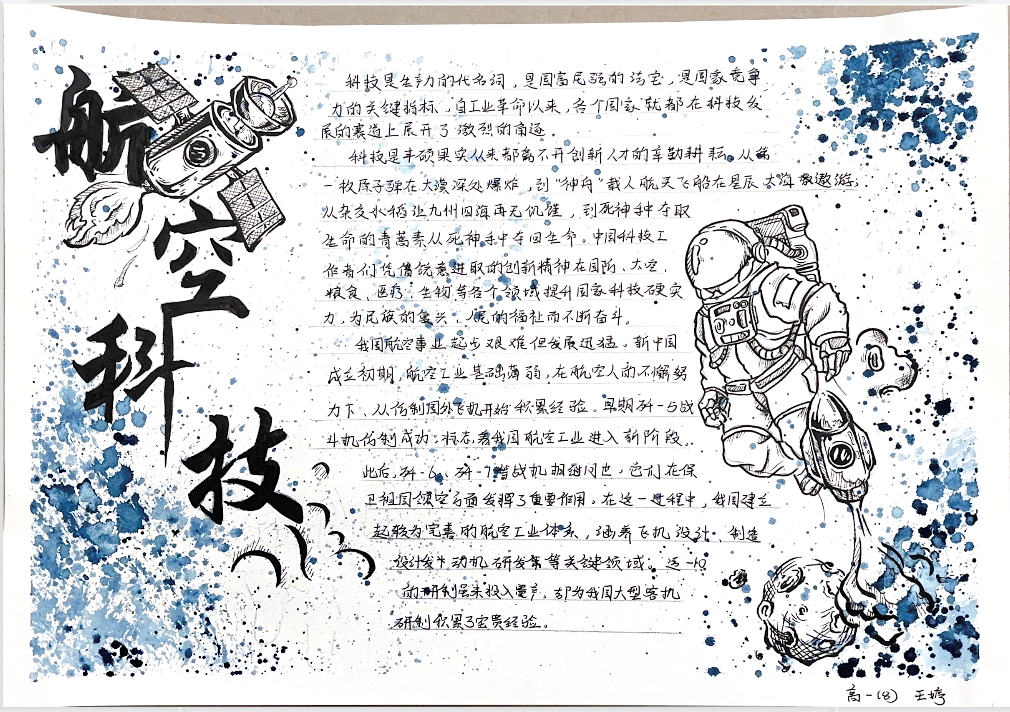 航空科技
科技是生产力的代名词，是国富民强的法宝，是国家竞争
力的关键指标，自工业革命以来，各个国家就都在科技发
展的赛道上展开了激烈的角逐。
科技是丰硕果实从来都离不开创新人才的辛勤耕耘。从第
一枚原子弹在大漠深处爆炸，到“神舟”载人航天飞船在星辰大海遨游；
从杂交水稻让九州四海再无饥馑，到死神手中夺取
生命的青蒿素从死神手中夺回生命。中国科技工
作者们凭借锐意进取的创新精神在国防、太空、
粮食、医疗、生物等各个领域提升国家科技硬实
力，为民族的复兴，人民的福祉而不断奋斗。
我国航空事业起步艰难但发展迅猛。新中国
成立初期，航空工业基础薄弱，在航空人的不懈努
力下，从仿制国外飞机开始积累经验。早期歼-5战
斗机仿制成功，标志着我国航空工业进入新阶段。
此后，歼-6、歼-7等战机相继问世，它们在保
卫祖国领空方面发挥了重要作用。在这一进程中，我国建立
起较为完善的航空工业体系，涵养飞机设计、制造
设计发动机研发等关键领域。运-10
的研制虽未投入量产，却为我国大型客机
研制积累了宝贵经验。
高一(8) 王婷